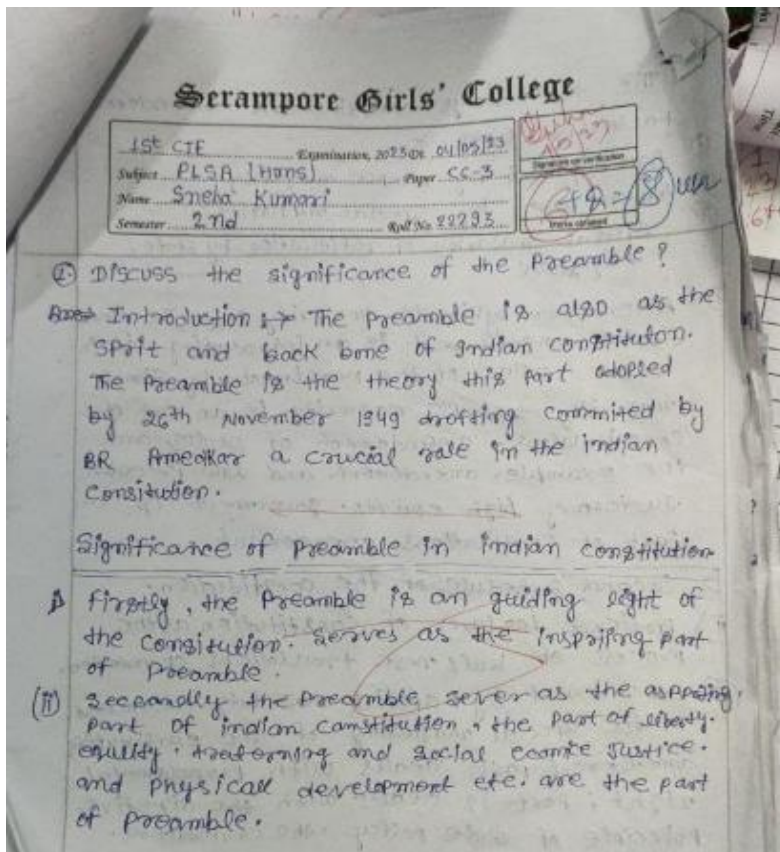 Serampore Girls' College
1st CIE Examination, 2023 Dt. 04/05/23
Subject PLSA (Hons) Paper CC-3
Name Sneha Kumari
Semester 2nd Roll No. 22293
Signature on verification
6+2=8
Marks obtained
② Discuss the significance of the Preamble?
Ans→ Introduction :→ The preamble is also as the
sprit and back bone of Indian constituton.
The Preamble is the theory this part adopled
by 26th November 1949 drofting commited by
BR Amedkar a crucial role in the indian
Consitution.
Significance of Preamble in indian constitution
i) firstly, the Preamble is an guiding light of
the consitution. Serves as the inspriing part
of Preamble.
(ii) Seccandly the Preamble sever as the
part of indian camstitution, the part of liberty.
equlity, and social ecomic Justice.
and physicall development etc. are the part
of preamble.